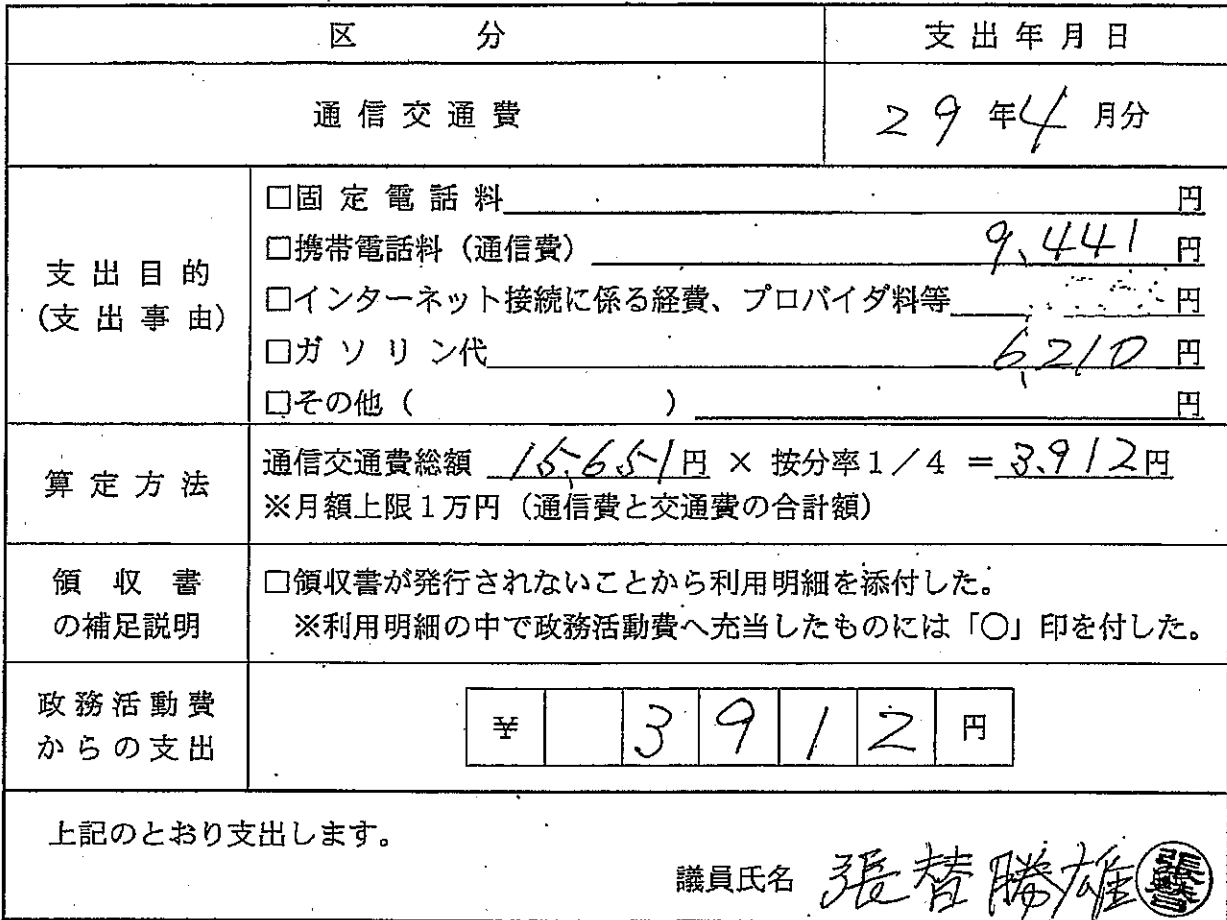 区分 支出年月日
通信交通費 29年4月分
支出目的
(支出事由)
□固定電話料 円
□携帯電話料（通信費） 9,441円
□インターネット接続に係る経費、プロバイダ料等 円
□ガソリン代 6,210円
□その他（ ） 円
算定方法
通信交通費総額 15,651円 × 按分率1／4 ＝ 3,912円
※月額上限1万円（通信費と交通費の合計額）
領収書
の補足説明
□領収書が発行されないことから利用明細を添付した。
※利用明細の中で政務活動費へ充当したものには「○」印を付した。
政務活動費
からの支出
¥ 3912円
上記のとおり支出します。
議員氏名 張替勝雄 張替